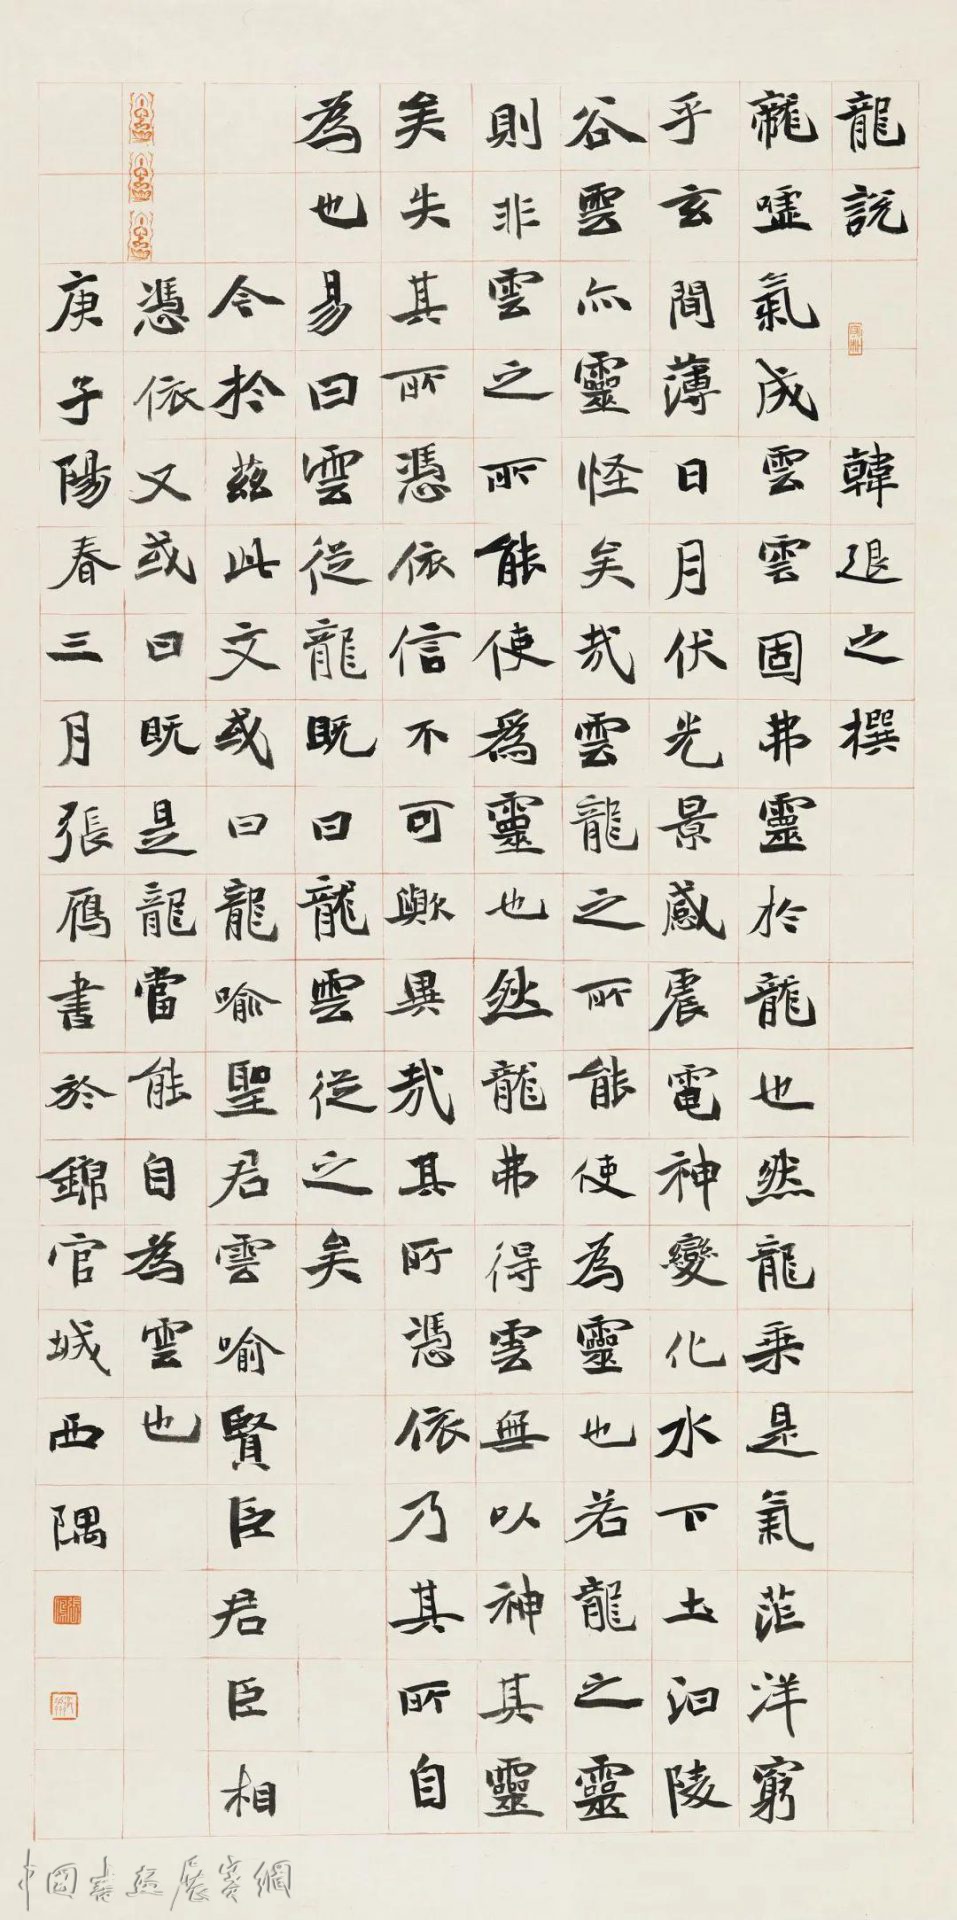 龍說 韓退之撰
龍噓氣成雲雲固弗靈於龍也然龍乗是氣茫洋窮
乎玄間薄日月伏光景感震電神變化水下土汩陵
谷雲亦靈怪矣㢤雲龍之所能使為靈也若龍之靈
則非雲之所能使爲靈也然龍弗得雲無以神其靈
矣失其所憑依信不可歟異㢤其所憑依乃其所自
為也易曰雲從龍既曰龍雲從之矣
今於茲此文或曰龍喻聖君雲喻賢臣君臣相
憑依又或曰既是龍當能自為雲也
庚子陽春三月張雁書於錦官城西隅
中國書畫展賽網